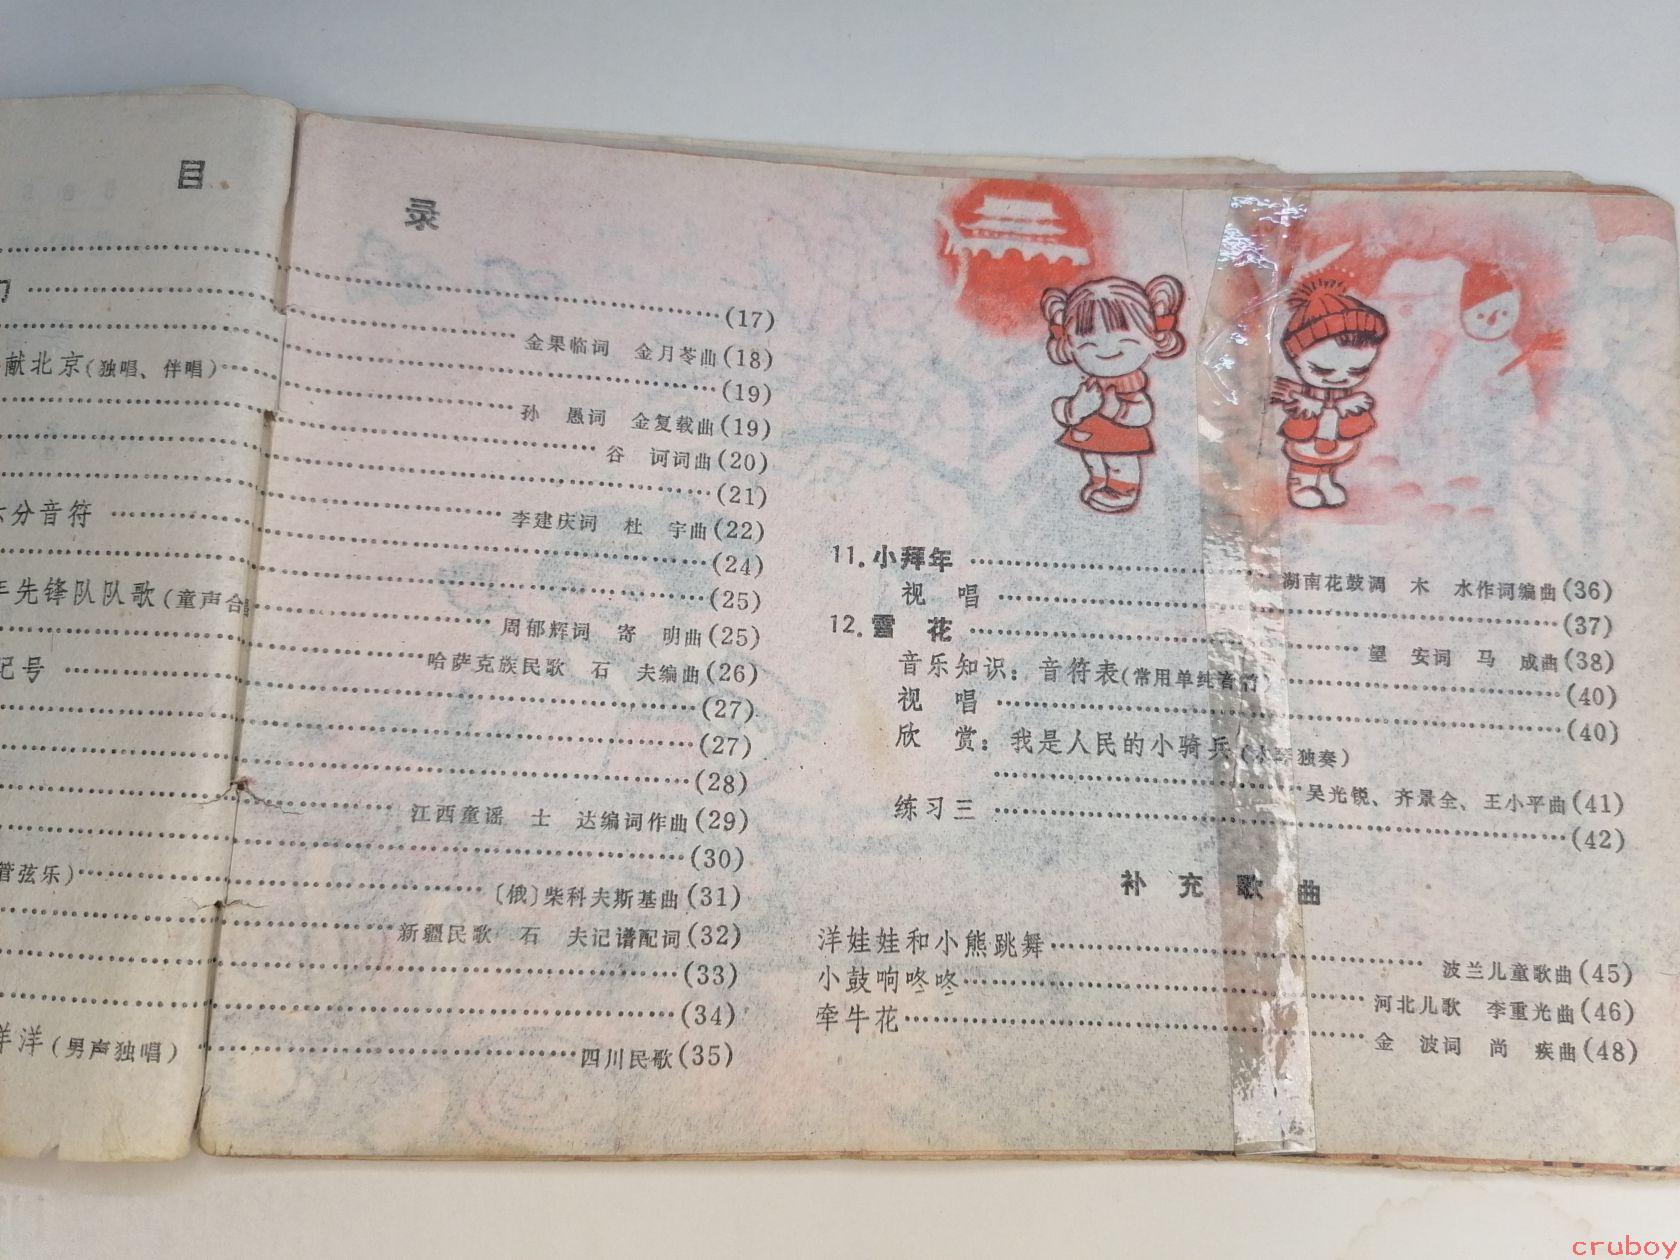 目 录
(17)
金果临词 金月苓曲(18)
献北京(独唱、伴唱) (19)
孙 愚词 金复载曲(19)
谷 诃词曲(20)
(21)
李建庆词 杜 宇曲(22)
分音符 (24)
(25)
先锋队队歌(童声合 周郁辉词 寄 明曲(25)
哈萨克族民歌 石 夫编曲(26)
记号 (27)
(27)
(28)
江西童谣 士 达编词作曲(29)
(30)
管弦乐) 〔俄〕柴科夫斯基曲(31)
新疆民歌 石 夫记谱配词(32)
(33)
(34)
洋洋(男声独唱) 四川民歌(35)
11.小拜年 湖南花鼓调 木 水作词编曲(36)
视 唱 (37)
12.雪 花 望 安词 马 成曲(38)
音乐知识：音符表(常用单纯音符) (40)
视 唱 (40)
欣 赏：我是人民的小骑兵(独奏)
吴光锐、齐景全、王小平曲(41)
练习三 (42)
补 充 歌 曲
洋娃娃和小熊跳舞 波兰儿童歌曲(45)
小鼓响咚咚 河北儿歌 李重光曲(46)
牵牛花 金 波词 尚 疾曲(48)
cruboy